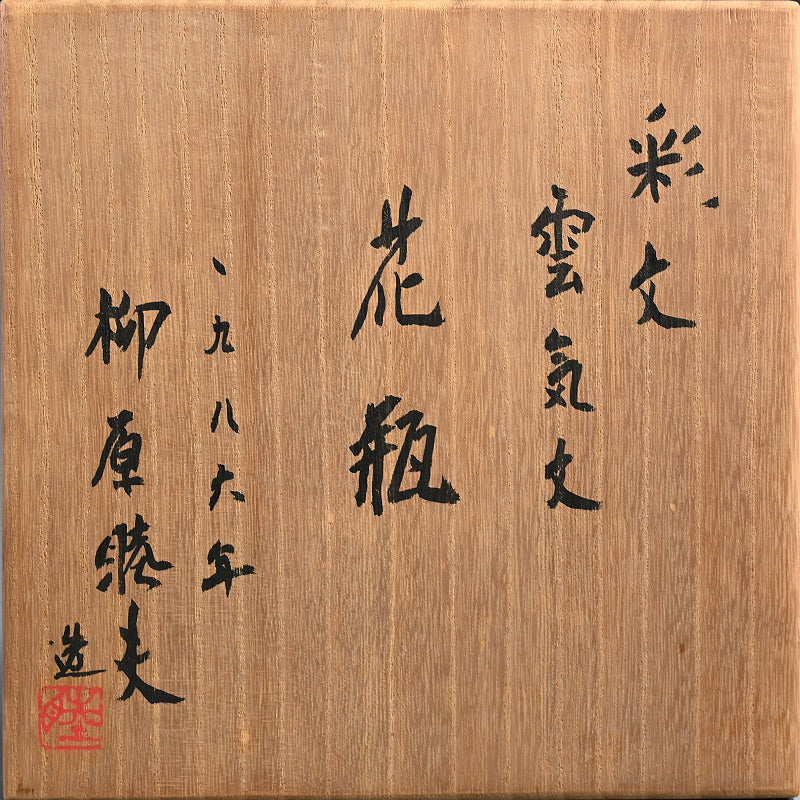 彩文
雲気文
花瓶
一九八六年
柳原睦夫
造
睦